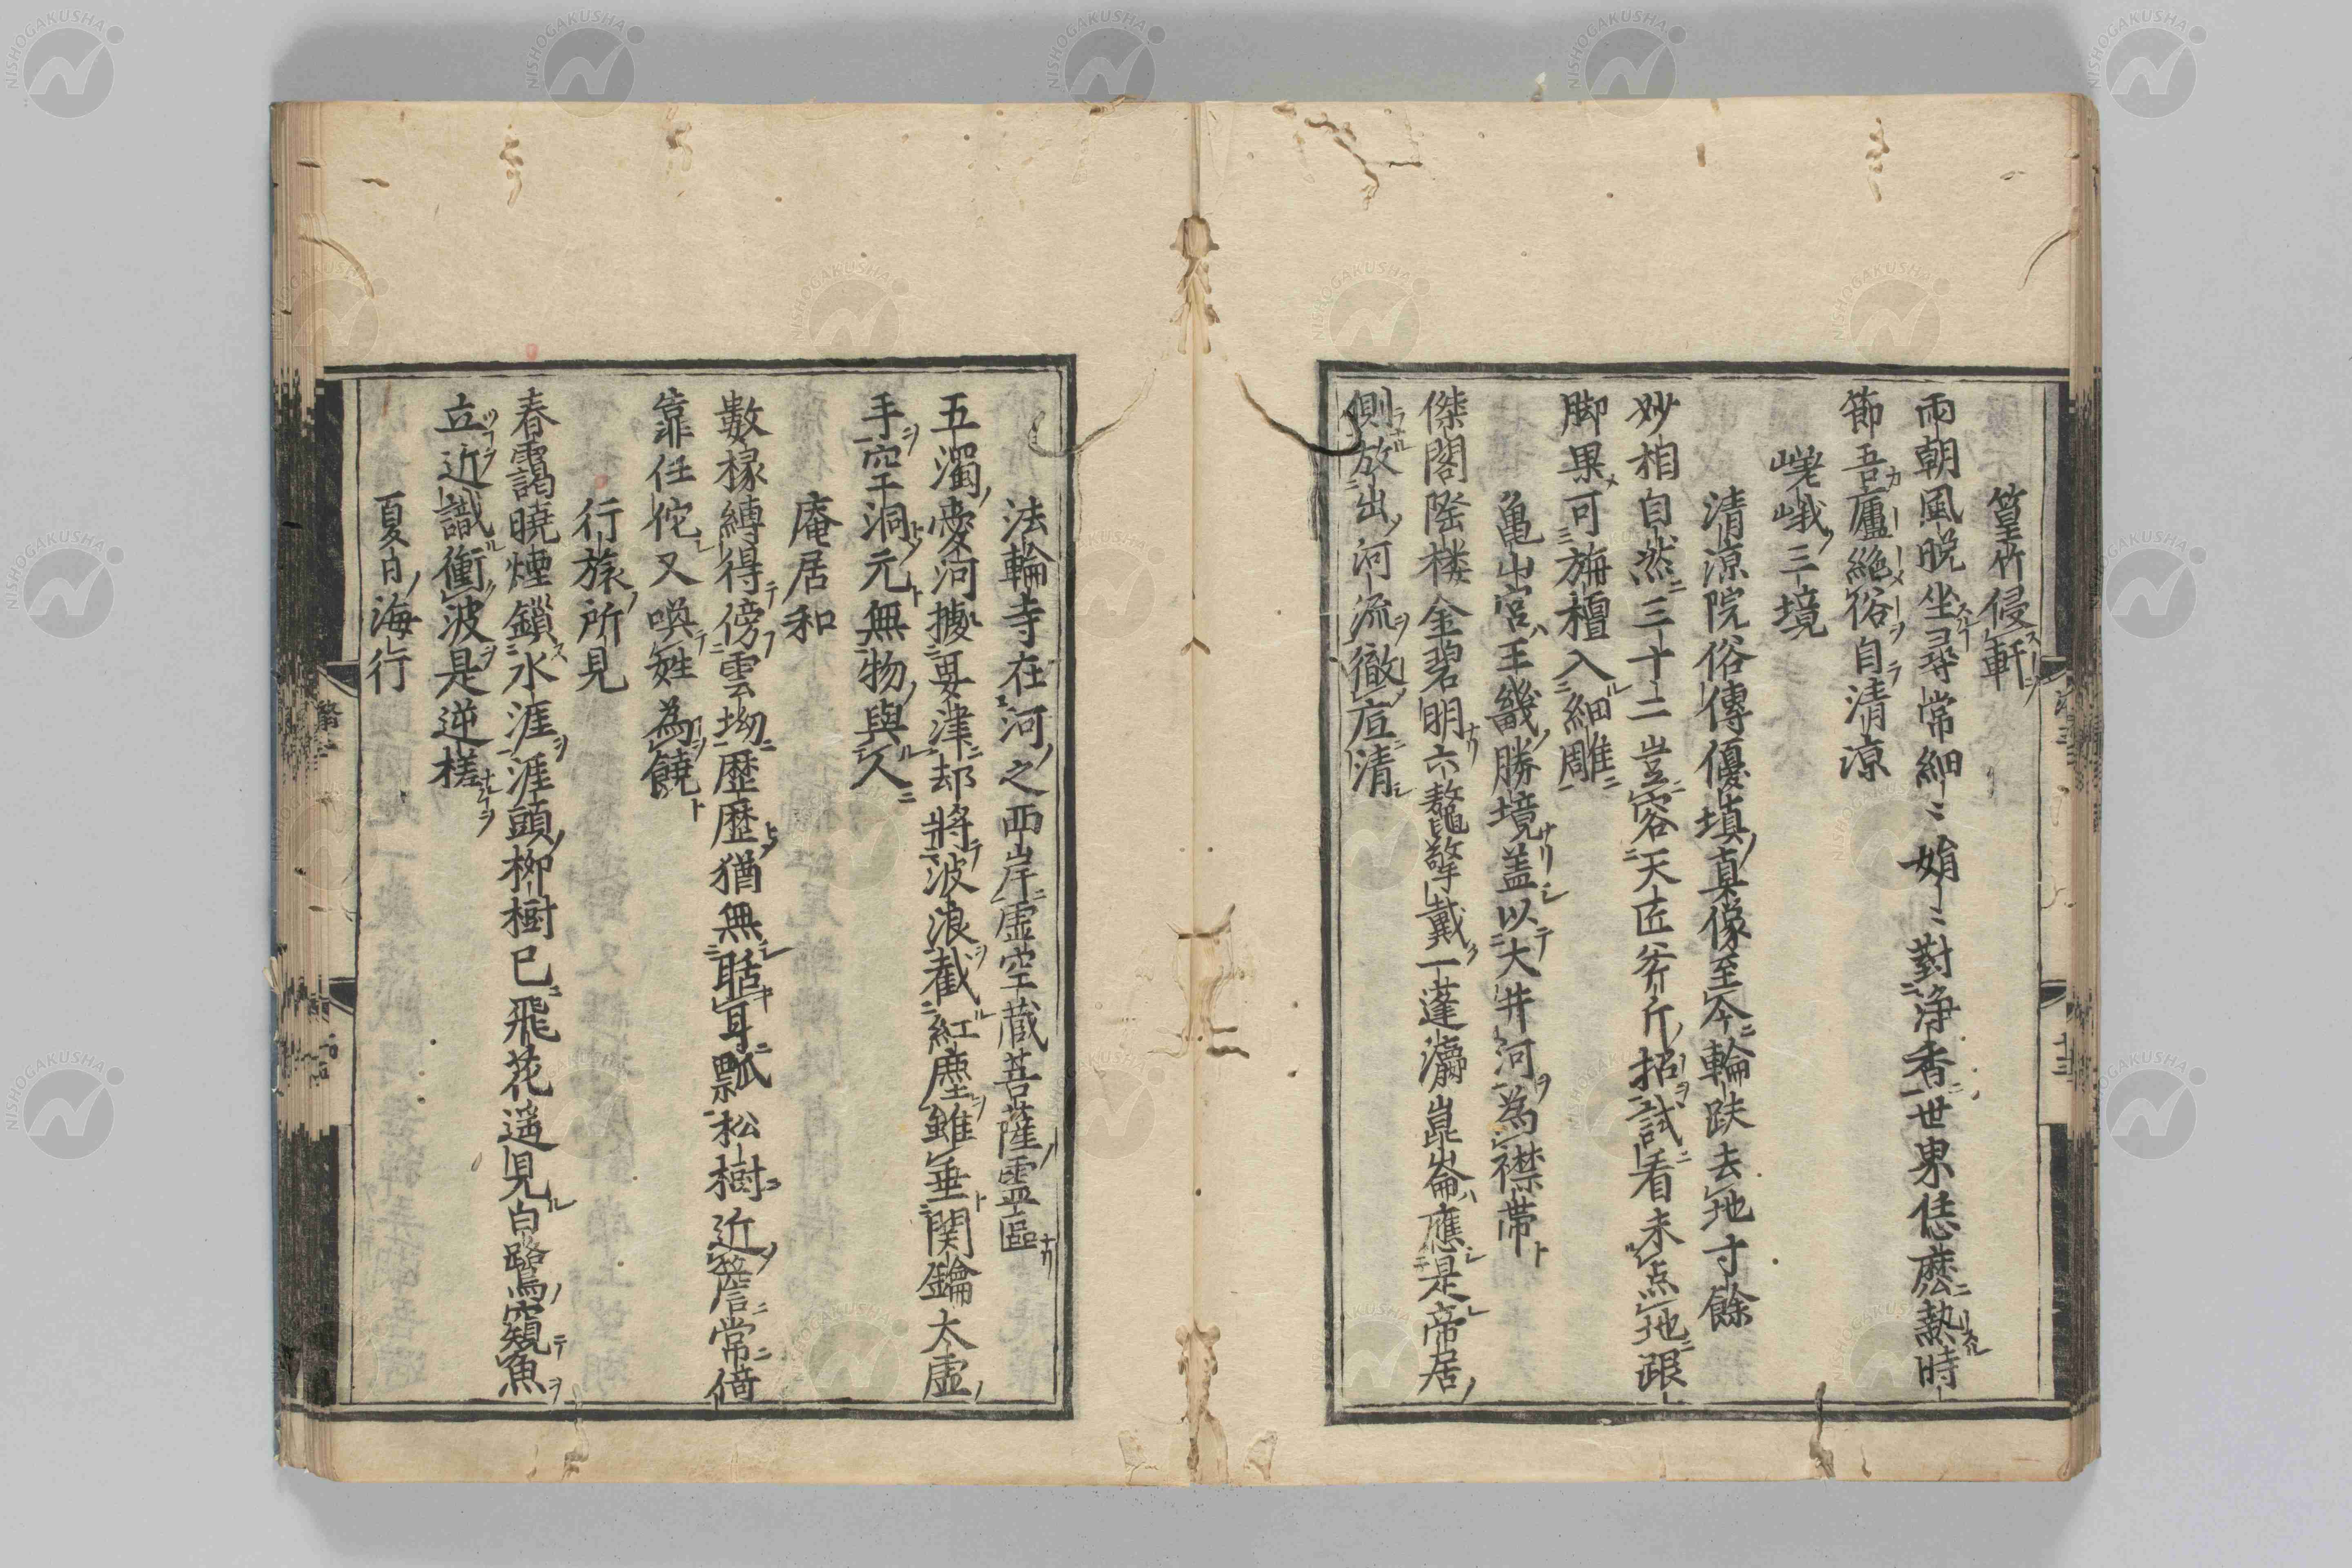 篁竹侵軒
雨朝風晩坐尋常細〻娟〻對浄香世界恁麼熱時
節吾廬絶俗自清凉
嵯峨三境
清凉院俗傳優塡真像至今輪趺去地寸餘
妙相自然三十二豈容天匠斧斤招試看未点地跟
脚果可旃檀入細雕
亀山宮王畿勝境盖以大井河為襟帯
傑閣隆楼金碧明六鼇擎戴一蓬瀛崑崙應是帝居
側放出河流徹底清
法輪寺在河之西岸虚空蔵菩薩霊區
五濁愛河據要津却將波浪截紅塵雖垂関鑰太虚
手空洞元無物與人
庵居和
數椽縛得傍雲坳歴歴猶無聒耳瓢松樹近簷常倚
靠任佗又喚姓為饒
行旅所見
春靄曉煙鎖水涯涯頭栁樹已飛花遥見白鷺窺魚
立近識衝波是逆槎
夏日海行
NISHOGAKUSHA